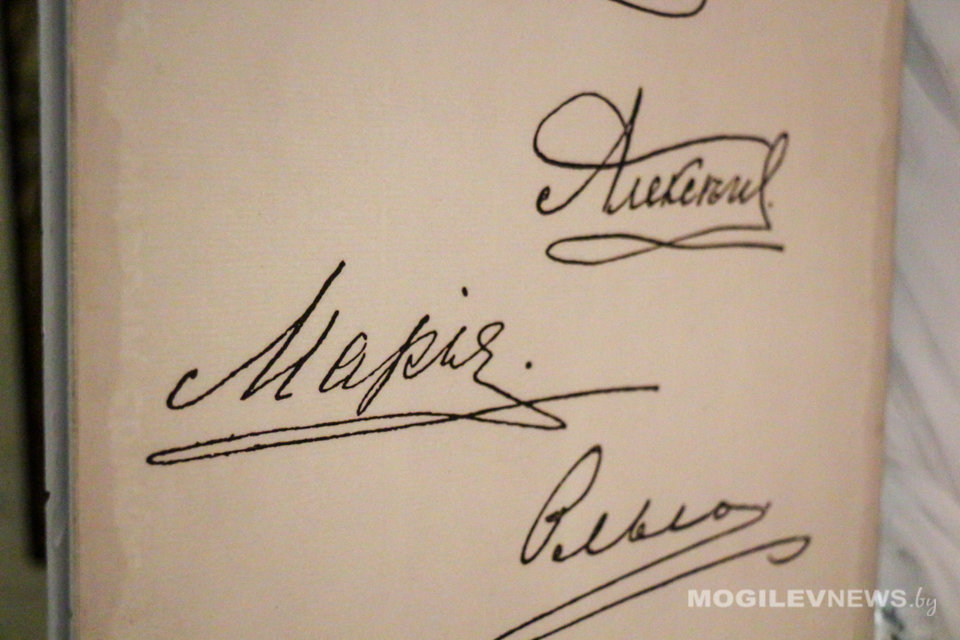 Алексѣй.
Марія.
Ольга
MOGILEVNEWS.by